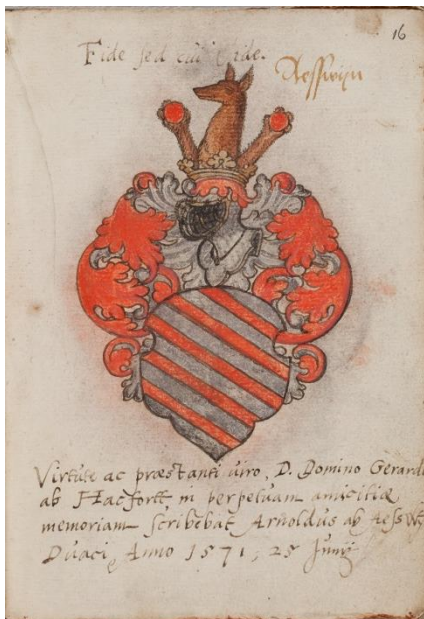 16
Fide sed cui vide.
Aesswijn
Virtute ac præstanti viro, D. Domino Gerardo
ab Hacfortt in perpetuam amicitiæ
memoriam scribebat Arnoldus ab Aessw
Duaci, Anno 1571, 25 Junij